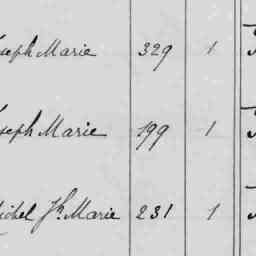 oseph Marie 329 1
oseph Marie 199 1
Michel Jh Marie 231 1